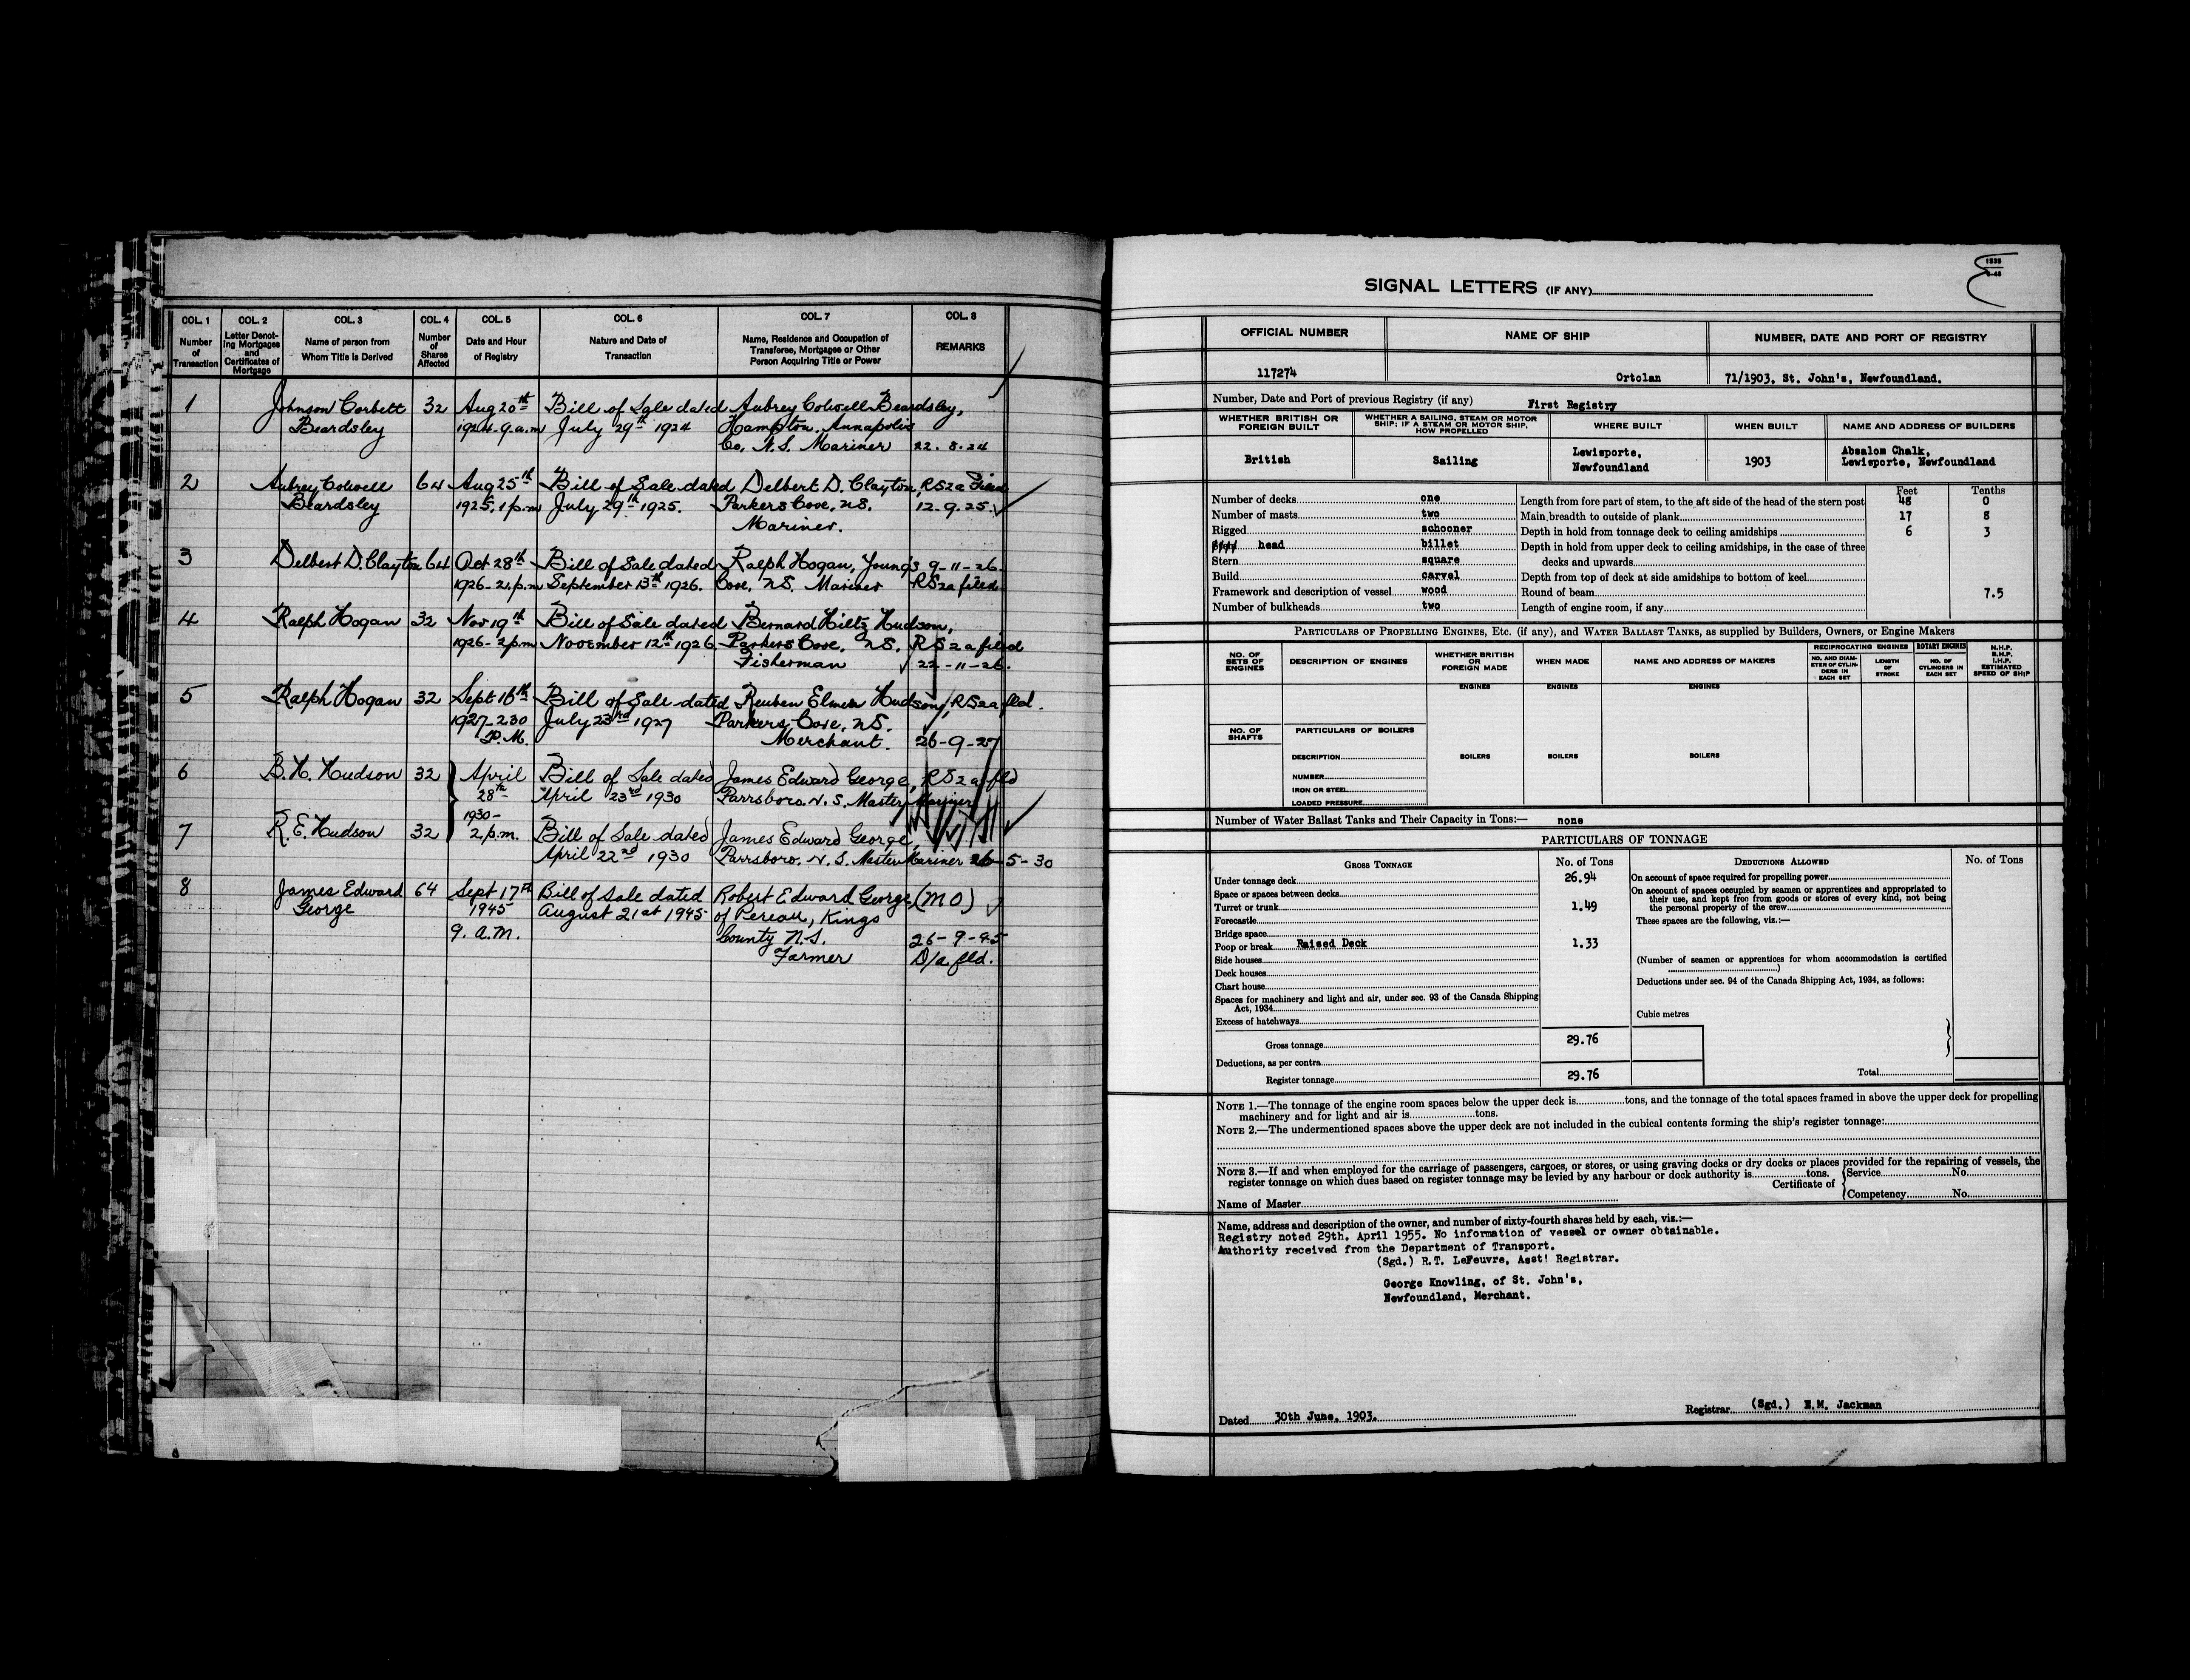 COL. 1 COL. 2 COL. 3 COL. 4 COL. 5 COL. 6 COL. 7 COL. 8
Number of Transaction
Letter Denoting Mortgages and Certificates of Mortgage
Name of person from Whom Title is Derived
Number of Shares Affected
Date and Hour of Registry
Nature and Date of Transaction
Name, Residence and Occupation of Transferee, Mortgagee or Other Person Acquiring Title or Power
REMARKS
1 Johnson Corbett 32 Aug 20th Bill of Sale dated Aubrey Colwell Beardsley,
Beardsley 1924. 9. a.m July 29th 1924 Hampton, Annapolis
Co. N.S. Mariner 22. 8. 24
2 Aubrey Colwell 64 Aug 25th Bill of Sale dated Delbert D. Clayton, RS2a Filed
Beardsley 1925, 1 p.m July 29th 1925. Parkers Cove, NS. 12. 9. 25.
Mariner.
3 Delbert D. Clayton 64 Oct 28th Bill of Sale dated Ralph Hogan, Youngs 9-11-26.
1926- 2 p.m September 13th 1926. Cove, NS. Mariner RS2a filed.
4 Ralph Hogan 32 Nov 19th Bill of Sale dated Bernard Hiltz Hudson,
1926- 2 p.m November 12th 1926. Parkers Cove, NS. RS2a filed
Fisherman 22-11-26.
5 Ralph Hogan 32 Sept 16th Bill of Sale dated Reuben Elmer Hudson, RS2a fld.
1927-230 July 23rd 1927 Parkers Cove, NS.
P.M. Merchant. 26-9-27
6 B. H. Hudson 32 April Bill of Sale dated James Edward George, RS2a fld
28th April 23rd 1930 Parrsboro. N.S. Master Mariner
1930-
7 R. E. Hudson 32 2 p.m. Bill of Sale dated James Edward George,
April 22nd 1930 Parrsboro. N.S. Master Mariner 26-5-30
8 James Edward 64 Sept 17th Bill of Sale dated Robert Edward George (MO)
George 1945 August 21st 1945 of Pereau, Kings
9. a.m. County N.S. 26-9-45
Farmer D/a fld.
1535
SIGNAL LETTERS (IF ANY)
OFFICIAL NUMBER NAME OF SHIP NUMBER, DATE AND PORT OF REGISTRY
117274 Ortolan 71/1903, St. John's, Newfoundland.
Number, Date and Port of previous Registry (if any) First Registry
WHETHER BRITISH OR FOREIGN BUILT
WHETHER A SAILING, STEAM OR MOTOR SHIP; IF A STEAM OR MOTOR SHIP, HOW PROPELLED
WHERE BUILT WHEN BUILT NAME AND ADDRESS OF BUILDERS
British Sailing Lewisporte, Newfoundland 1903 Absalom Chalk, Lewisporte, Newfoundland
Feet Tenths
Number of decks one Length from fore part of stem, to the aft side of the head of the stern post 48 0
Number of masts two Main breadth to outside of plank 17 8
Rigged schooner Depth in hold from tonnage deck to ceiling amidships 6 3
head billet Depth in hold from upper deck to ceiling amidships, in the case of three
Stern square decks and upwards
Build carvel Depth from top of deck at side amidships to bottom of keel
Framework and description of vessel wood Round of beam 7.5
Number of bulkheads two Length of engine room, if any
PARTICULARS OF PROPELLING ENGINES, ETC. (if any), and WATER BALLAST TANKS, as supplied by Builders, Owners, or Engine Makers
NO. OF SETS OF ENGINES
DESCRIPTION OF ENGINES
WHETHER BRITISH OR FOREIGN MADE
WHEN MADE
NAME AND ADDRESS OF MAKERS
RECIPROCATING ENGINES ROTARY ENGINES
NO. AND DIAMETER OF CYLINDERS IN EACH SET
LENGTH OF STROKE
NO. OF CYLINDERS IN EACH SET
N.H.P. B.H.P. I.H.P. ESTIMATED SPEED OF SHIP
ENGINES ENGINES ENGINES
NO. OF SHAFTS
PARTICULARS OF BOILERS
DESCRIPTION BOILERS BOILERS BOILERS
NUMBER
IRON OR STEEL
LOADED PRESSURE
Number of Water Ballast Tanks and Their Capacity in Tons:— none
PARTICULARS OF TONNAGE
GROSS TONNAGE No. of Tons DEDUCTIONS ALLOWED No. of Tons
Under tonnage deck 26.94 On account of space required for propelling power
Space or spaces between decks On account of spaces occupied by seamen or apprentices and appropriated to
Turret or trunk 1.49 their use, and kept free from goods or stores of every kind, not being
the personal property of the crew
Forecastle These spaces are the following, viz.:—
Bridge space
Poop or break Raised Deck 1.33
Side houses (Number of seamen or apprentices for whom accommodation is certified
Deck houses )
Chart house Deductions under sec. 94 of the Canada Shipping Act, 1934, as follows:
Spaces for machinery and light and air, under sec. 93 of the Canada Shipping
Act, 1934
Excess of hatchways Cubic metres
Gross tonnage 29.76
Deductions, as per contra
Register tonnage 29.76 Total
NOTE 1.—The tonnage of the engine room spaces below the upper deck is tons, and the tonnage of the total spaces framed in above the upper deck for propelling
machinery and for light and air is tons.
NOTE 2.—The undermentioned spaces above the upper deck are not included in the cubical contents forming the ship's register tonnage:
NOTE 3.—If and when employed for the carriage of passengers, cargoes, or stores, or using graving docks or dry docks or places provided for the repairing of vessels, the
register tonnage on which dues based on register tonnage may be levied by any harbour or dock authority is tons.
Certificate of Service No.
Competency No.
Name of Master
Name, address and description of the owner, and number of sixty-fourth shares held by each, viz.:—
Registry noted 29th. April 1955. No information of vessel or owner obtainable.
Authority received from the Department of Transport.
(Sgd.) R.T. LeFeuvre, Asst! Registrar.
George Knowling, of St. John's,
Newfoundland, Merchant.
Dated 30th June, 1903. Registrar (Sgd.) E.M. Jackman